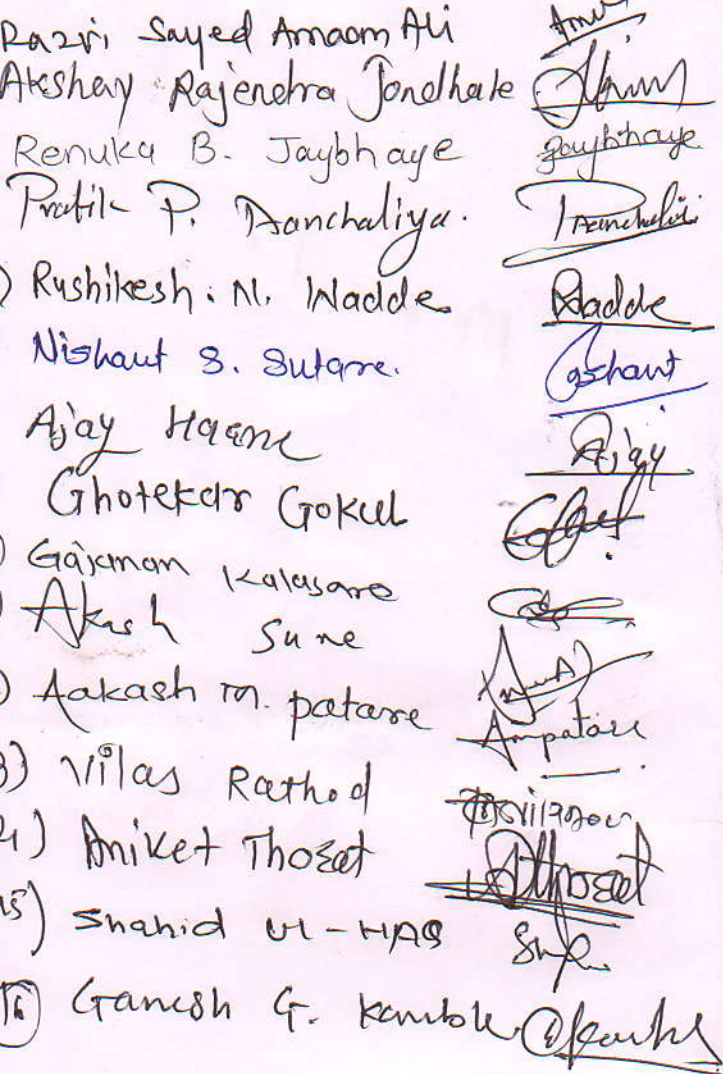 Razvi Sayed Amaam Ali
Akshay Rajendra Jondhale
Renuka B. Jaybhaye Jaybhaye
Pratik P. Aanchaliya.
) Rushikesh. N. Wadde Wadde
Nishant S. Sutare.
Ajay Haane Ajay
Ghotekar Gokul
) Gajanan Kalasare
) Akash Sune
) Aakash m. patare Ampatare
3) Vilas Rathod
4) Aniket Thorat AThorat
15) Shahid Ul-HAQ
16 Ganesh G. Kamble